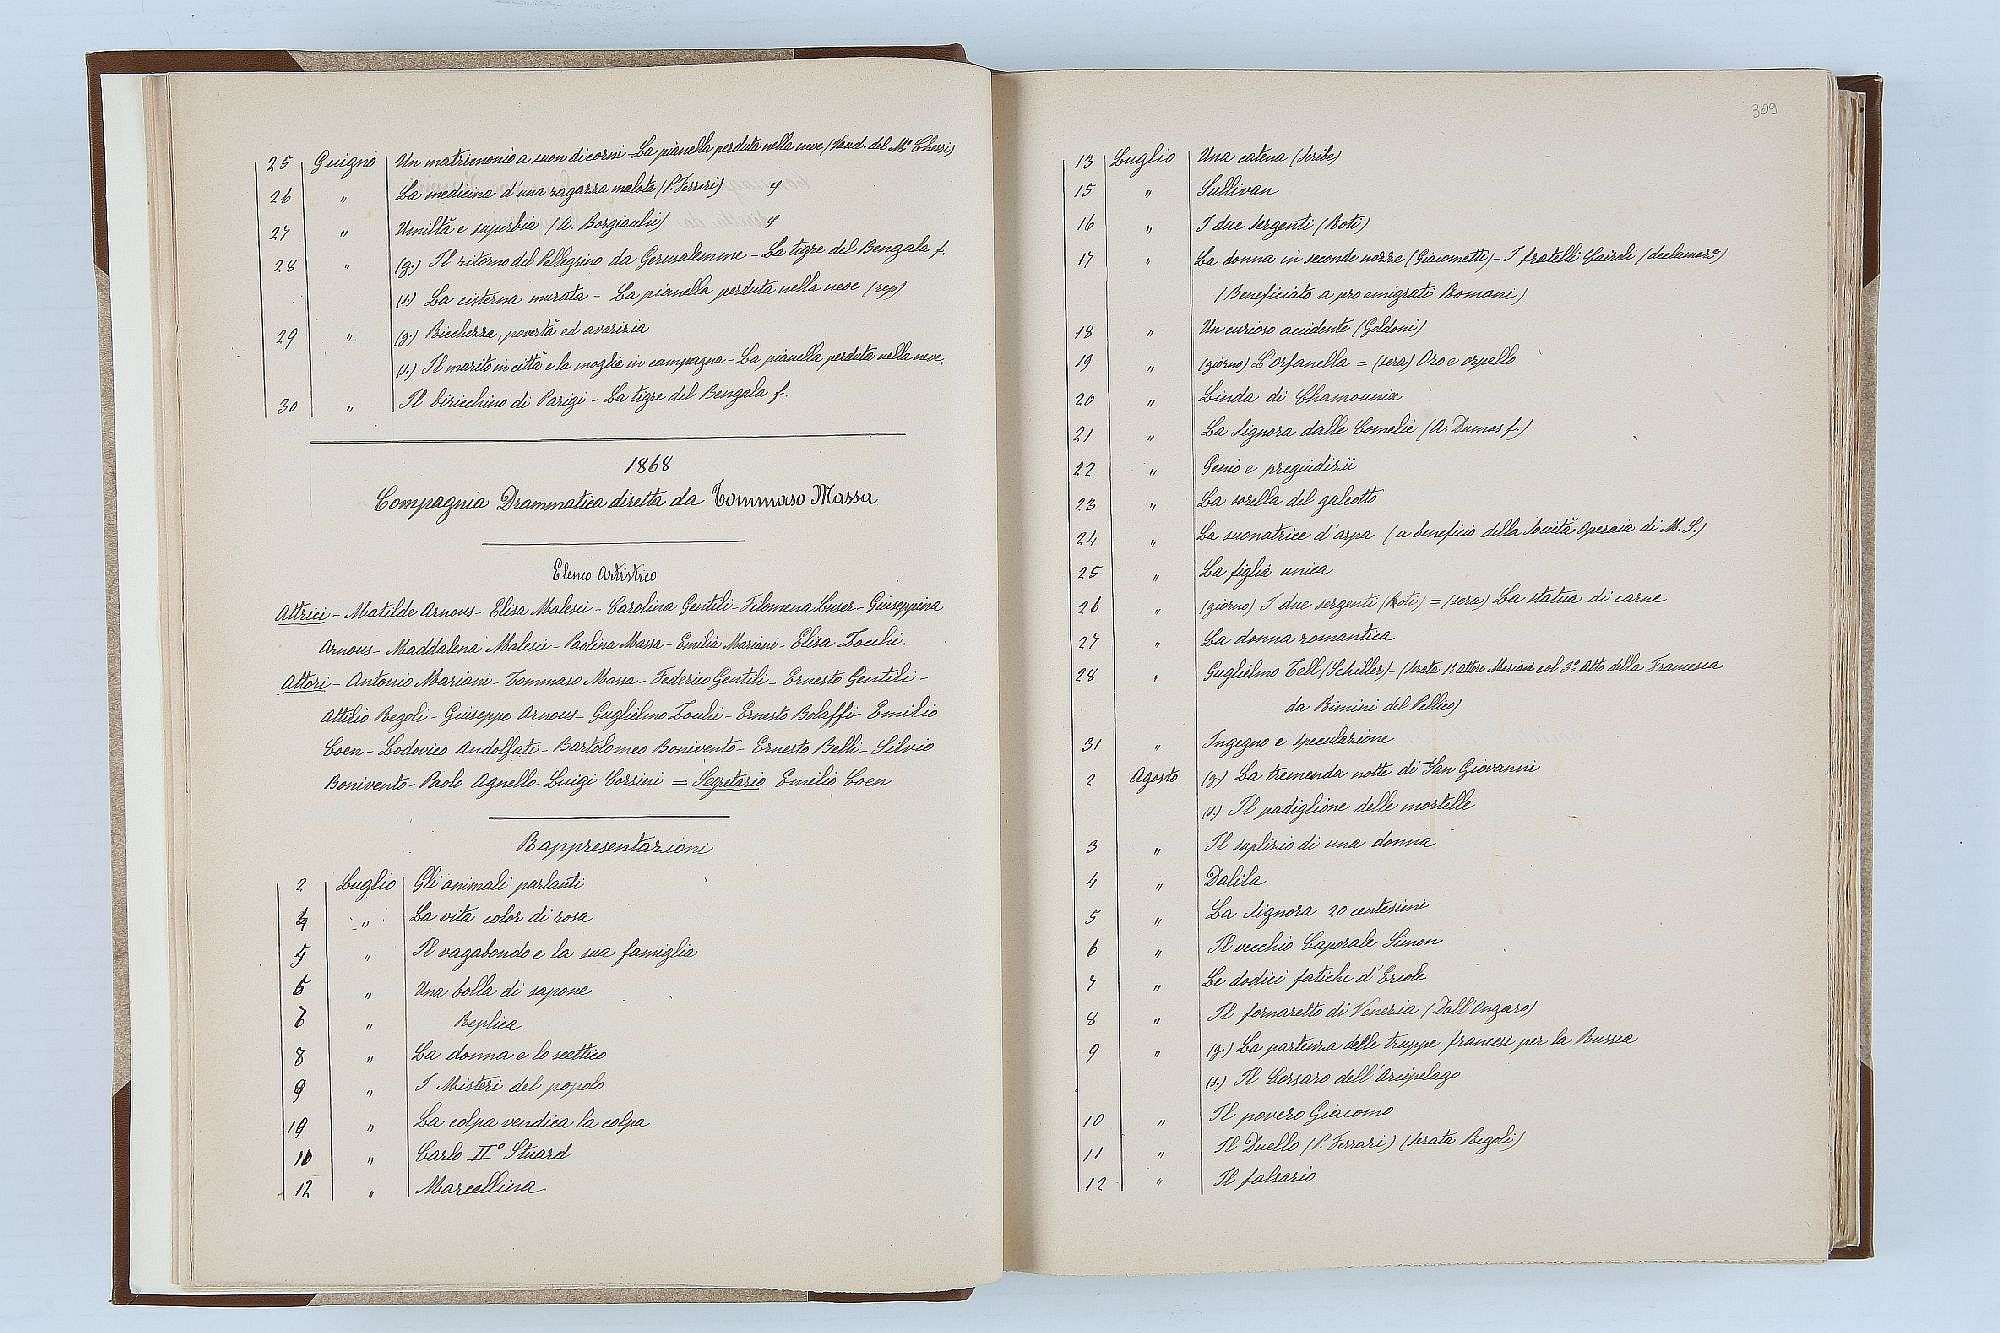 25 Guigno Un matrimonio a suon di corni - La pianella perduta nella neve (Vaud. del Mo Cheri)
26 " La medicina d'una ragazza malata (P. Ferrari) "
27 " Umiltà e superbia (A. Borgiachi) "
28 " (g.) Il ritorno del Pellegrino da Gerusalemme - La tigre del Bengala f.
(s.) La cisterna murata - La pianella perduta nella neve (rep)
29 " (g.) Ricchezze, povertà ed avarizia
(s.) Il marito in città e la moglie in campagna - La pianella perduta nella neve.
30 " Il biricchino di Parigi - La tigre del Bengala f.
1868
Compagnia Drammatica diretta da Tommaso Massa
Elenco Artistico
Attrici - Matilde Arnous - Elisa Malesci - Carolina Gentili - Filomena Luser - Giuseppina
Arnous - Maddalena Malesci - Paolina Massa - Emilia Mariani - Elisa Zoculi.
Attori - Antonio Mariani - Tommaso Massa - Federico Gentili - Ernesto Gentili -
Attilio Regoli - Giuseppe Arnous - Guglielmo Zoculi - Ernesto Bolaffi - Emilio
Coen - Lodovico Andolfati - Bartolomeo Bonivento - Ernesto Belli - Silvio
Bonivento - Paolo Agnello - Luigi Corsini = Segretario Emilio Coen
Rappresentazioni
2 Luglio Gli animali parlanti
4 " La vita color di rosa
5 " Il vagabondo e la sua famiglia
6 " Una bolla di sapone
7 " Replica
8 " La donna e lo scettico
9 " I Misteri del popolo
10 " La colpa vendica la colpa
11 " Carlo IIo Stuard
12 " Marcellina
309
13 Luglio Una catena (Scribe)
15 " Sullivan
16 " I due sergenti (Roti)
17 " La donna in seconde nozze (Giacometti) - I fratelli Cairoli (declamaze)
(Beneficiata a pro emigrati Romani)
18 " Un curioso accidente (Goldoni)
19 " (giorno) L'Orfanella = (sera) Oro e orpello
20 " Linda di Chamounix
21 " La Signora dalle Camelie (A. Dumas f.)
22 " Genio e pregiudizii
23 " La sorella del galeotto
24 " La suonatrice d'arpa (a beneficio della Società Operaia di M. S.)
25 " La figlia unica
26 " (giorno) I due sergenti (Roti) = (sera) La statua di carne
27 " La donna romantica
28 " Guglielmo Tell (Schiller) - (Serata 1o attore Mariani col 3o Atto della Francesca
da Rimini del Pellico)
31 " Ingegno e speculazione
2 Agosto (g.) La tremenda notte di San Giovanni
(s.) Il padiglione delle mortelle
3 " Il suplizio di una donna
4 " Dalila
5 " La Signora 20 centesimi
6 " Il vecchio Caporale Simon
7 " Le dodici fatiche d'Ercole
8 " Il fornaretto di Venezia (Dall'Ongaro)
9 " (g.) La partenza delle truppe francesi per la Russia
(s.) Il Corsaro dell'Arcipelago
10 " Il povero Giacomo
11 " Il Duello (P. Ferrari) (serata Regoli)
12 " Il falsario